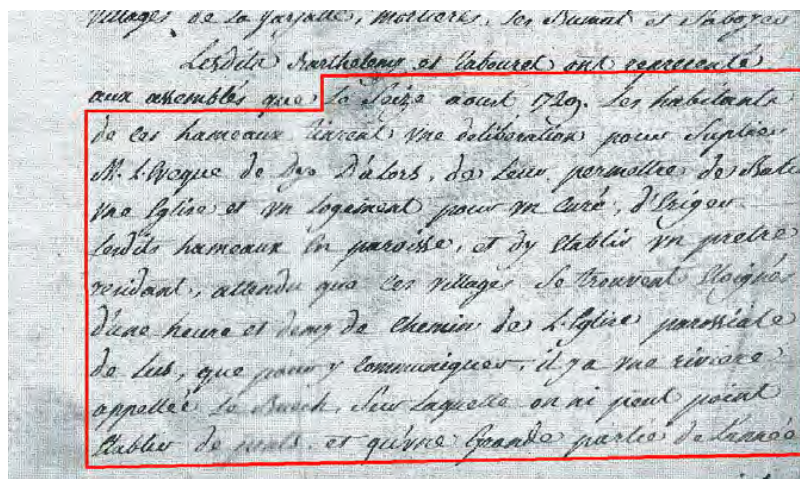 villages de la Jarjatte, mortieres, les Bumat et Saboyes
Lesdits Barthelemy et Tabouret ont representé
aux assemblés que le Seize aoust 1729. Les habitants
de ces hameaux tinrent vne deliberation pour Suplier
M. L'Eveque de Dye D'alors, de Leur permettre de Batir
vne Eglise et vn logement pour vn Curé, d'Eriger
lesdits hameaux En paroisse, et dy Etablir vn pretre
residant, attendu que ces villages Se trouvent Eloignés
d'une heure et demy de Chemin de L'Eglise paroissiale
de Lus, que pour y Communiquer, il y a vne riviere
appellée Le Buech, Sur Laquelle on ni peut point
Etablir de ponts, et qu'vne Grande partie de L'année